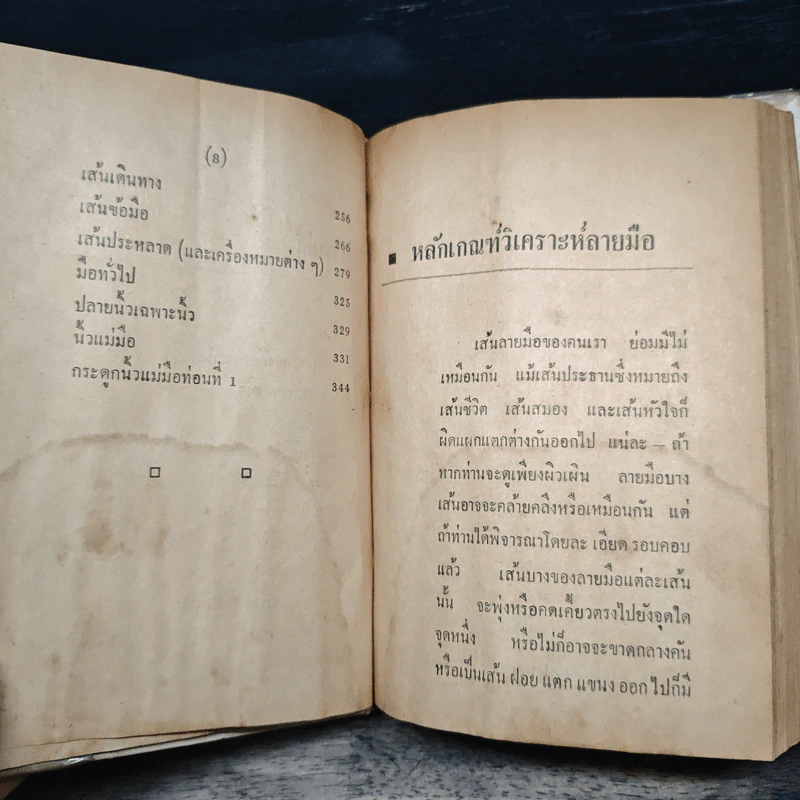 (8)
เส้นเดินทาง 256
เส้นข้อมือ 266
เส้นประหลาด (และเครื่องหมายต่าง ๆ) 279
มือทั่วไป 325
ปลายนิ้วเฉพาะนิ้ว 329
นิ้วแม่มือ 331
กระดูกนิ้วแม่มือท่อนที่ 1 344
หลักเกณฑ์วิเคราะห์ลายมือ
เส้นลายมือของคนเรา ย่อมมีไม่
เหมือนกัน แม้เส้นประธานซึ่งหมายถึง
เส้นชีวิต เส้นสมอง และเส้นหัวใจก็
ผิดแผกแตกต่างกันออกไป แน่ละ – ถ้า
หากท่านจะดูเพียงผิวเผิน ลายมือบาง
เส้นอาจจะคล้ายคลึงหรือเหมือนกัน แต่
ถ้าท่านได้พิจารณาโดยละเอียด รอบคอบ
แล้ว เส้นบางของลายมือแต่ละเส้น
นั้น จะพุ่งหรือคดเคี้ยวตรงไปยังจุดใด
จุดหนึ่ง หรือไม่ก็อาจจะขาดกลางคัน
หรือเป็นเส้น ฝอย แตก แขนง ออก ไปก็มี